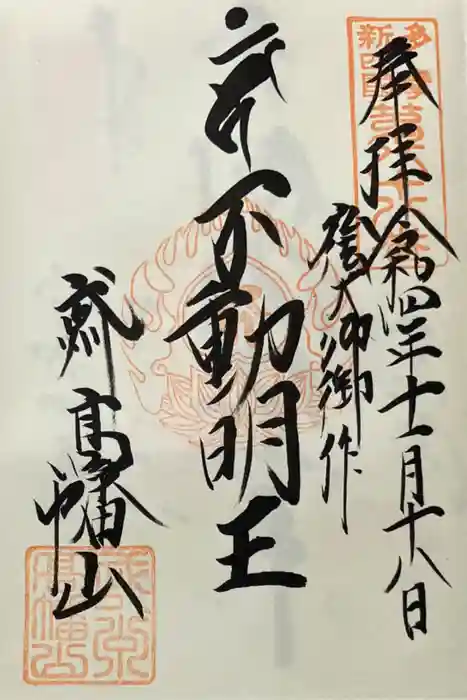 奉拝 令和四年十一月十八日
弘法大師御作
不動明王
武州 高幡山
武州
高幡山